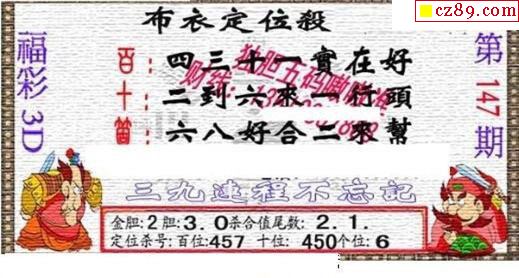 cz89.com
布衣定位殺
福彩3D
第147期
百：四三十一實在好
十：二到六來一行頭
箇：六八好合二來幫
三九達程不忘記
金胆:2胆:3.0杀合值尾数:2.1.
定位杀号:百位:457 十位:450个位:6